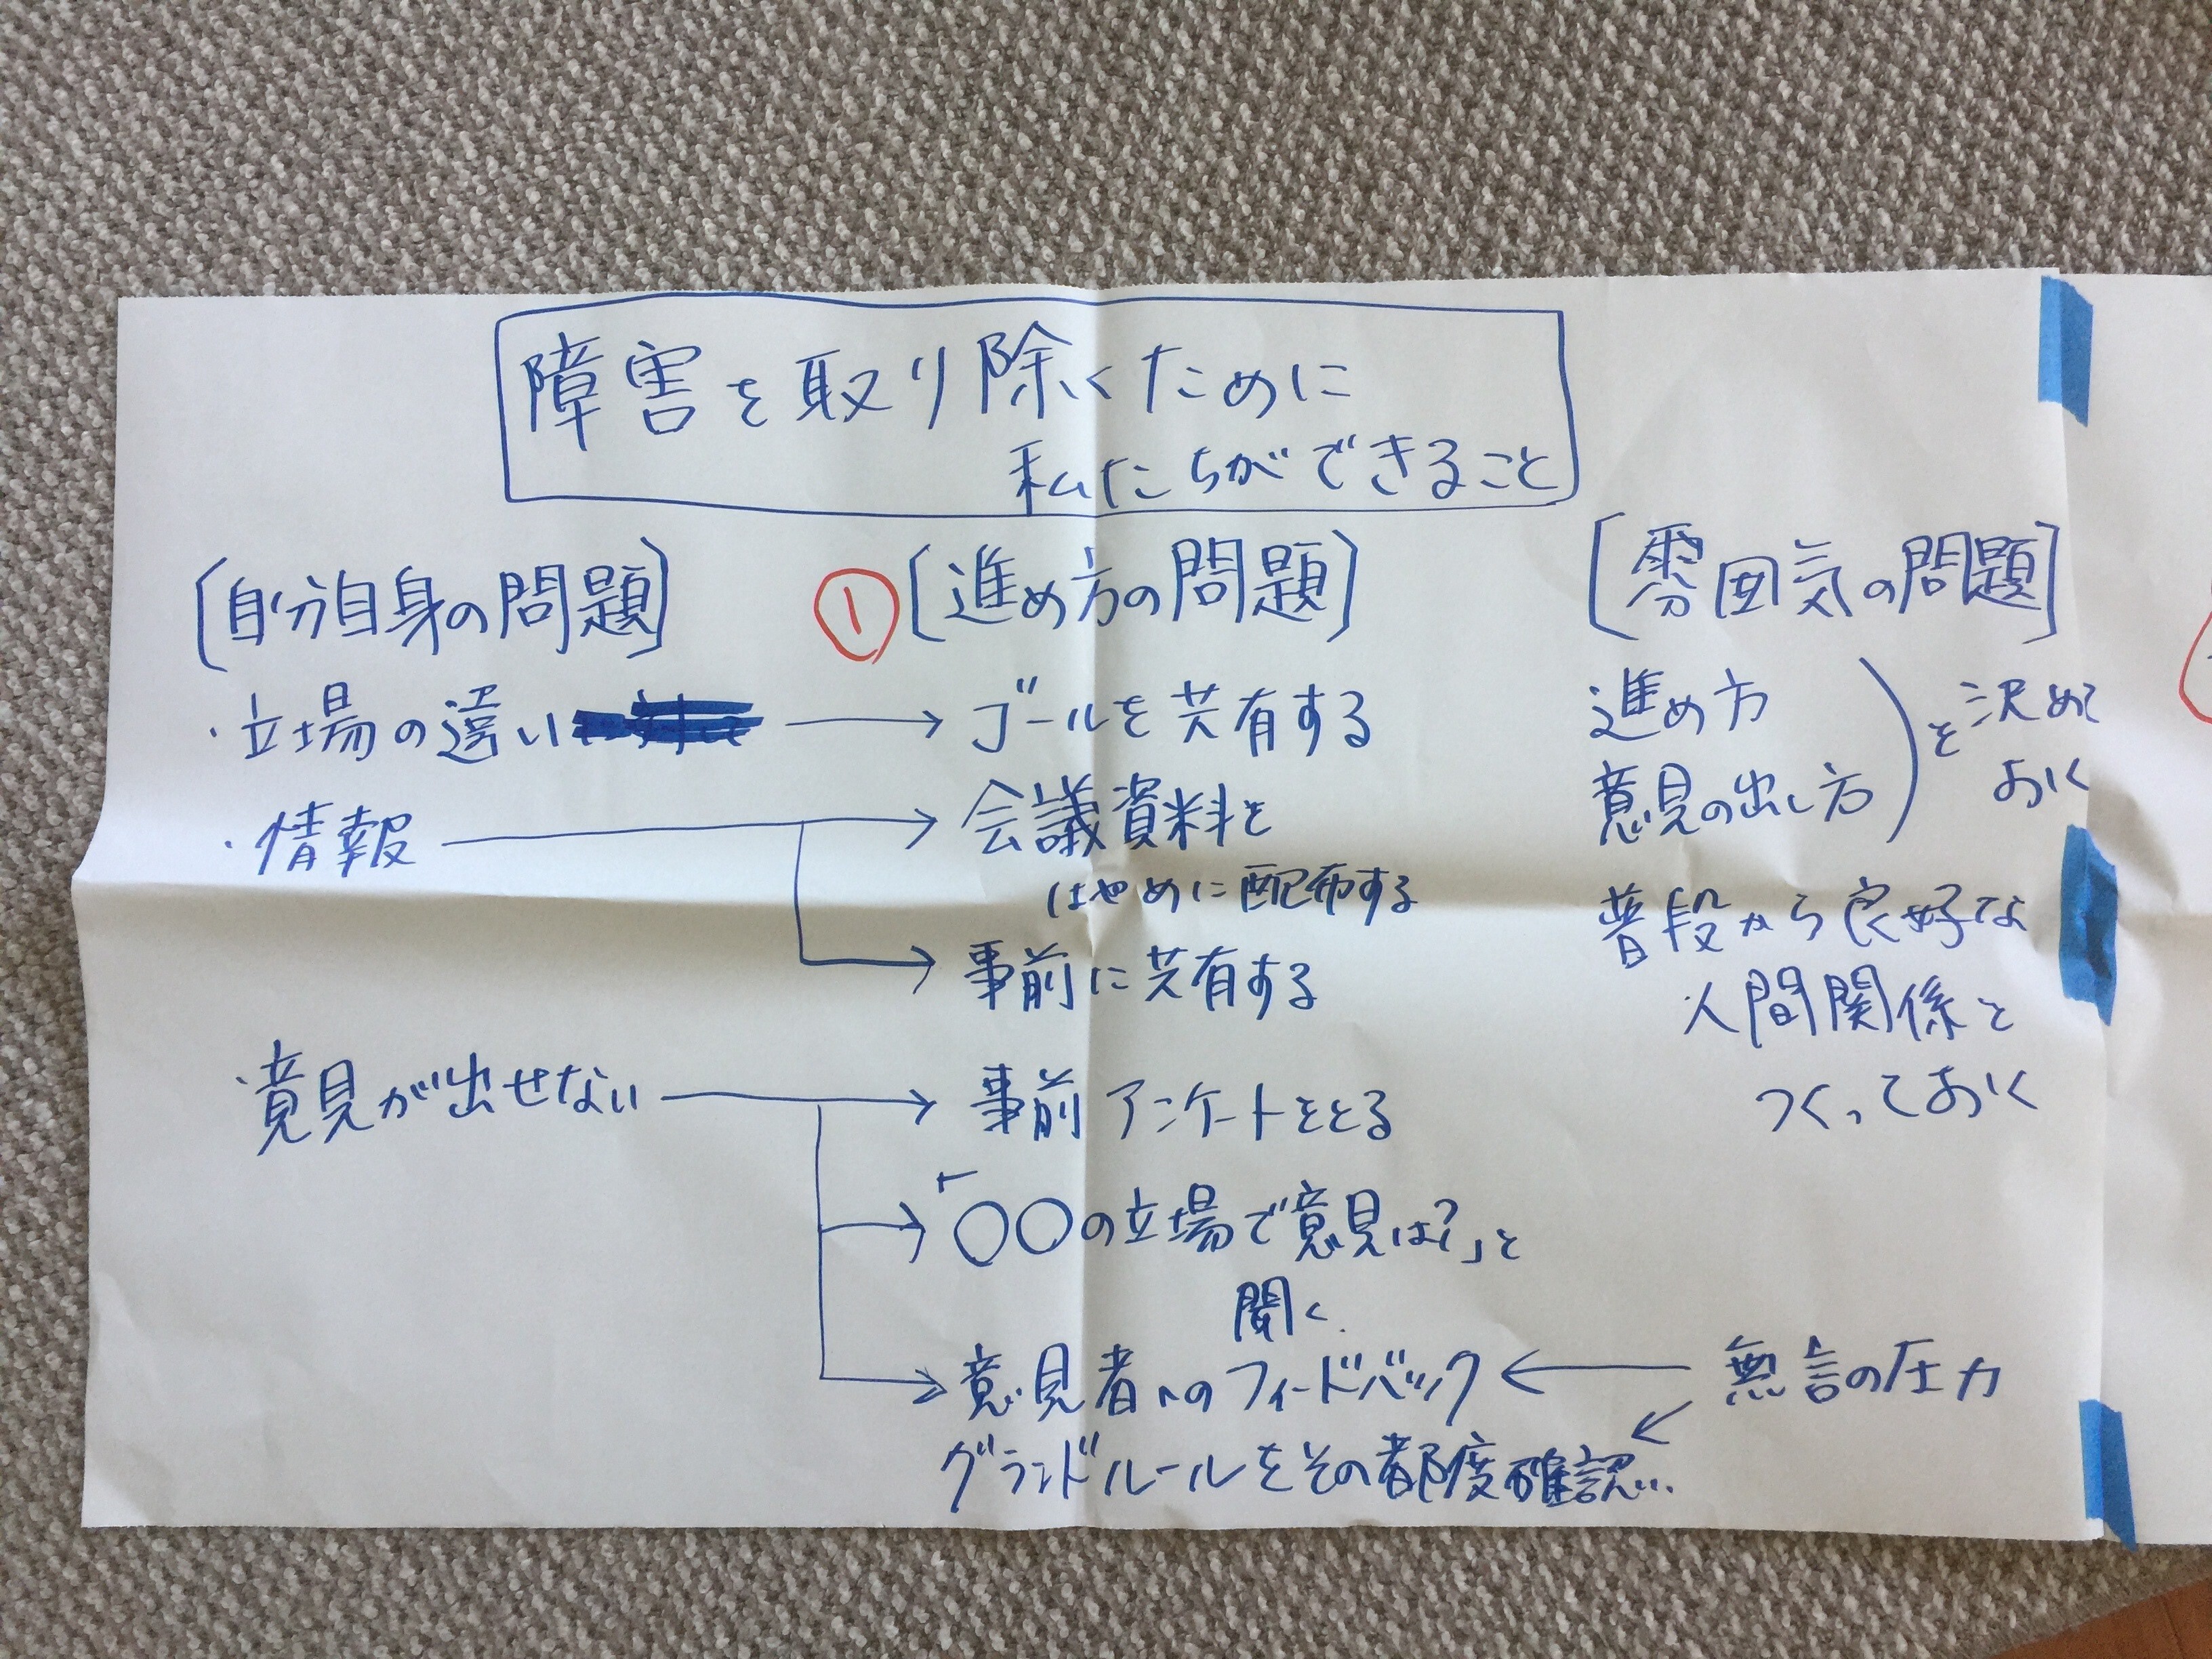 障害を取り除くために
私たちができること
〔自分自身の問題〕
・立場の違い
・情報
・意見が出せない
①〔進め方の問題〕
→ ゴールを共有する
→ 会議資料を
はやめに配布する
→ 事前に共有する
→ 事前アンケートをとる
→「〇〇の立場で意見は?」と
聞く.
→ 意見者へのフィードバック
グランドルールをその都度確認…
〔雰囲気の問題〕
進め方
意見の出し方
)を決めて
おく
普段から良好な
人間関係を
つくっておく
← 無言の圧力